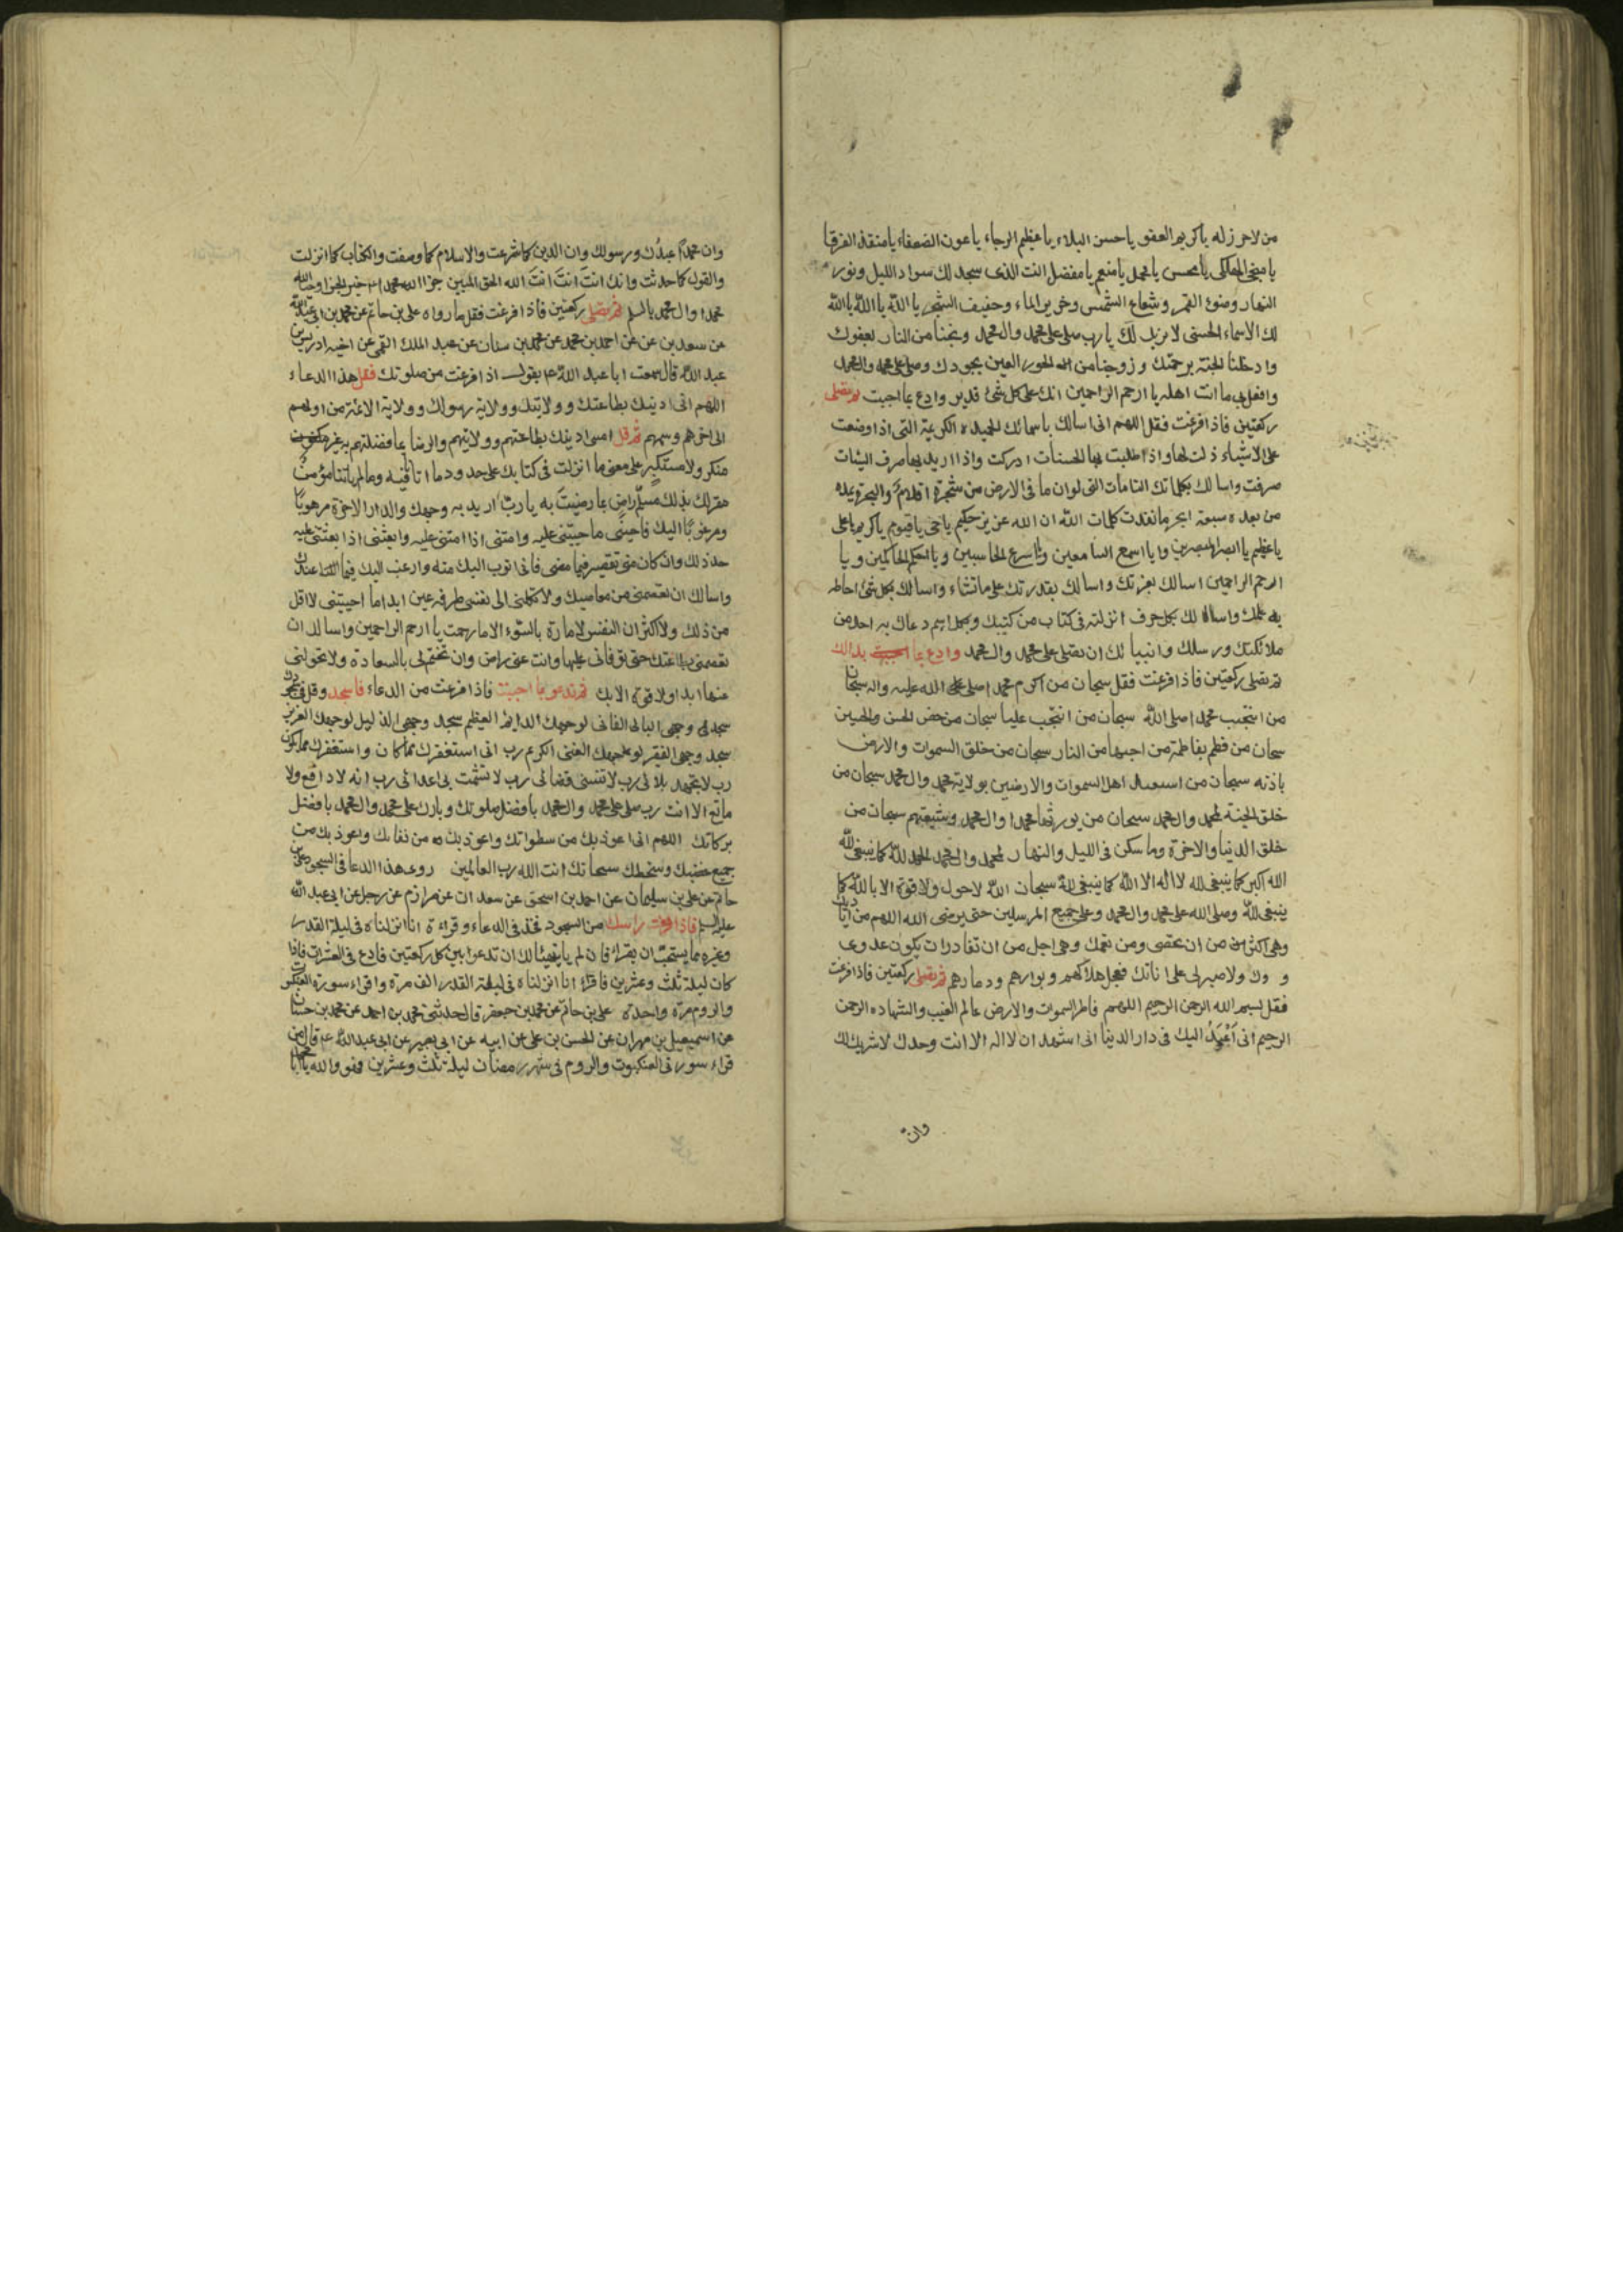 من لا حرز له يا كريم العفو يا حسن البلاء يا عظيم الرجاء يا عون الضعفاء يا منقذ الغرقا
يا منجى الهلكى يا محسن يا مجمل يا منعم يا مفضل انت الذى سجد لك سواد الليل ونور
النهار وضوء القمر وشعاع الشمس وخرير الماء وحفيف الشجر يا الله يا الله يا الله
لك الاسماء الحسنى لا شريك لك يا رب صل على محمد وال محمد ونجنا من النار بعفوك
وادخلنا الجنة برحمتك وزوجنا من الحور العين بجودك وصل على محمد وال محمد
وافعل بى ما انت اهله يا ارحم الراحمين انك على كل شئ قدير وادع بما احببت ثم تصلى
ركعتين فاذا فرغت فقل اللهم انى اسالك باسمائك الحميده الكريمة التى اذا وضعت
على الاشياء ذلت لها واذا طلبت بها الحسنات ادركت واذا اريد بها صرف السيئات
صرفت واسالك بكلماتك التامات التى لو ان ما فى الارض من شجرة اقلام والبحر يمده
من بعده سبعة ابحر ما نفدت كلمات الله ان الله عزيز حكيم يا حى يا قيوم يا كريم يا على
يا عظيم يا ابصر المبصرين ويا اسمع السامعين ويا اسرع الحاسبين ويا احكم الحاكمين ويا
ارحم الراحمين اسالك بعزتك واسالك بقدرتك على ما تشاء واسالك بكل شئ احاط
به علمك واسالك بكل حرف انزلته فى كتاب من كتبك وبكل اسم دعاك به احد من
ملائكتك ورسلك وانبيائك ان تصلى على محمد وال محمد وادع بما بدالك
ثم تصلى ركعتين فاذا فرغت فقل سبحان من اكرم محمدا صلى الله عليه واله سبحان
من انتجب محمدا صلى الله سبحان من انتجب عليا سبحان من خص الحسن والحسين
سبحان من فطم بفاطمة من احبها من النار سبحان من خلق السموات والارض
باذنه سبحان من استعبد اهل السموات والارضين بولاية محمد وال محمد سبحان من
خلق الجنة لمحمد وال محمد سبحان من يورثها محمدا وال محمد وشيعتهم سبحان من
خلق الدنيا والاخرة وما سكن فى الليل والنهار لمحمد وال محمد الحمد لله كما ينبغى لله
الله اكبر كما ينبغى لله لا اله الا الله كما ينبغى لله سبحان الله لا حول ولا قوة الا بالله كما
ينبغى لله وصلى الله على محمد وال محمد وعلى جميع المرسلين حتى يرضى الله اللهم من اياديك
وهى اكثر من ان تحصى ومن نعمك وهى اجل من ان تغادر ان يكون عدوى
عدوك ولا صبر لى على اناتك فعجل هلاكهم وبوارهم ودمارهم ثم تصلى ركعتين فاذا فرغت
فقل بسم الله الرحمن الرحيم اللهم فاطر السموات والارض عالم الغيب والشهاده الرحمن
الرحيم انى اَعْهَدُ اليك فى دار الدنيا انى اشهد ان لا اله الا انت وحدك لا شريك لك
وان
وان محمدًا عبدُك ورسولك وان الدين كما شرعت والاسلام كما وصفت والكتاب كما انزلت
والقول كما حدثت وانك انتَ انتَ انتَ الله الحق المبين جزا الله محمدا خير الجزا وحيا الله
محمدا وال محمد بالسلم ثم تصلى ركعتين فاذا فرغت فقل ما رواه على بن حاتم عن محمد بن ابى عبد الله
عن سعد بن عن احمد بن محمد عن محمد بن سنان عن عبد الملك القمى عن اخيه ادريس بن
عبد الله قال سمعت ابا عبد الله ع يقول اذا فرغت من صلوتك فقل هذا الدعاء
اللهم انى ادينك بطاعتك وولايتك وولاية رسولك وولاية الائمة من اولهم
الى اخرهم وسمهم ثم قل امين ادينك بطاعتهم وولايتهم والرضا بما فضلتهم به غير
منكر ولا مستكبر على معنى ما انزلت فى كتابك على حدود ما اتانا فيه وما لم ياتنا مؤمن
مقر لك بذلك مسلّم راض بما رضيتَ به يا ربّ اريد به وجهك والدار الاخرة مرهوبًا
ومرغوبًا اليك فيه فاحينى ما حييتنى عليه وامتنى اذا امتنى عليه وابعثنى اذا بعثتنى عليه
وان كان منى تقصير فيما مضى فانى اتوب اليك منه وارغب اليك فيما عندك
واسالك ان تعصمنى من معاصيك ولا تكلنى الى نفسى طرفة عين ابدا ما احييتنى لا اقل
من ذلك ولا اكثر ان النفس لامارة بالسّوء الا ما رحمت يا ارحم الراحمين واسالك ان
تعصمنى بطاعتك حتى توفانى عليها وانت عنى راض وان تختم لى بالسعادة ولا تحولنى
عنها ابدا ولا قوة الا بك ثم تدعو بما احببت فاذا فرغت من الدعاء فاسجد وقل فى سجودك
سجد وجهى البالى الفانى لوجهك الدايم العظيم سجد وجهى الذليل لوجهك العزيز
سجد وجهى الفقير لوجهك الغنى الكريم رب انى استغفرك مما كان واستغفرك مما يكون
رب لا تجهد بلائى رب لا تسئ قضائى رب لا تشمت بى اعدائى رب انه لا دافع ولا
مانع الا انت رب صل على محمد وال محمد بافضل صلوتك وبارك على محمد وال محمد بافضل
بركاتك اللهم انى اعوذ بك من سطواتك واعوذ بك من نقماتك واعوذ بك من
جميع غضبك وسخطك سبحانك انت الله رب العالمين روى هذا الدعا فى السجود على بن
حاتم عن على بن سليمان عن احمد بن اسحق عن سعدان عن مرازم عن رجل عن ابى عبد الله
عليه السلم فاذا رفعت راسك من السجود فخذ فى الدعاء وقراءة انا انزلناه فى ليلة القدر
وغيره مما يستحبّ ان يقراء فان لم يتهيّا لك ان تدعو بين كل ركعتين فادع فى العشرات فاذا
كان ليلة ثلث وعشرين فاقراء انا انزلناه فى ليلة القدر الف مرة واقراء سورة العنكبوت
والروم مرّة واحدة على بن حاتم عن محمد بن جعفر قال حدثنى محمد بن احمد عن محمد بن حسان
عن اسمعيل بن مهران عن الحسن بن على عن ابيه عن ابى بصير عن ابى عبد الله ع قال من
قراء سورتى العنكبوت والروم فى شهر رمضان ليلة ثلث وعشرين فهو والله يا ابا محمد